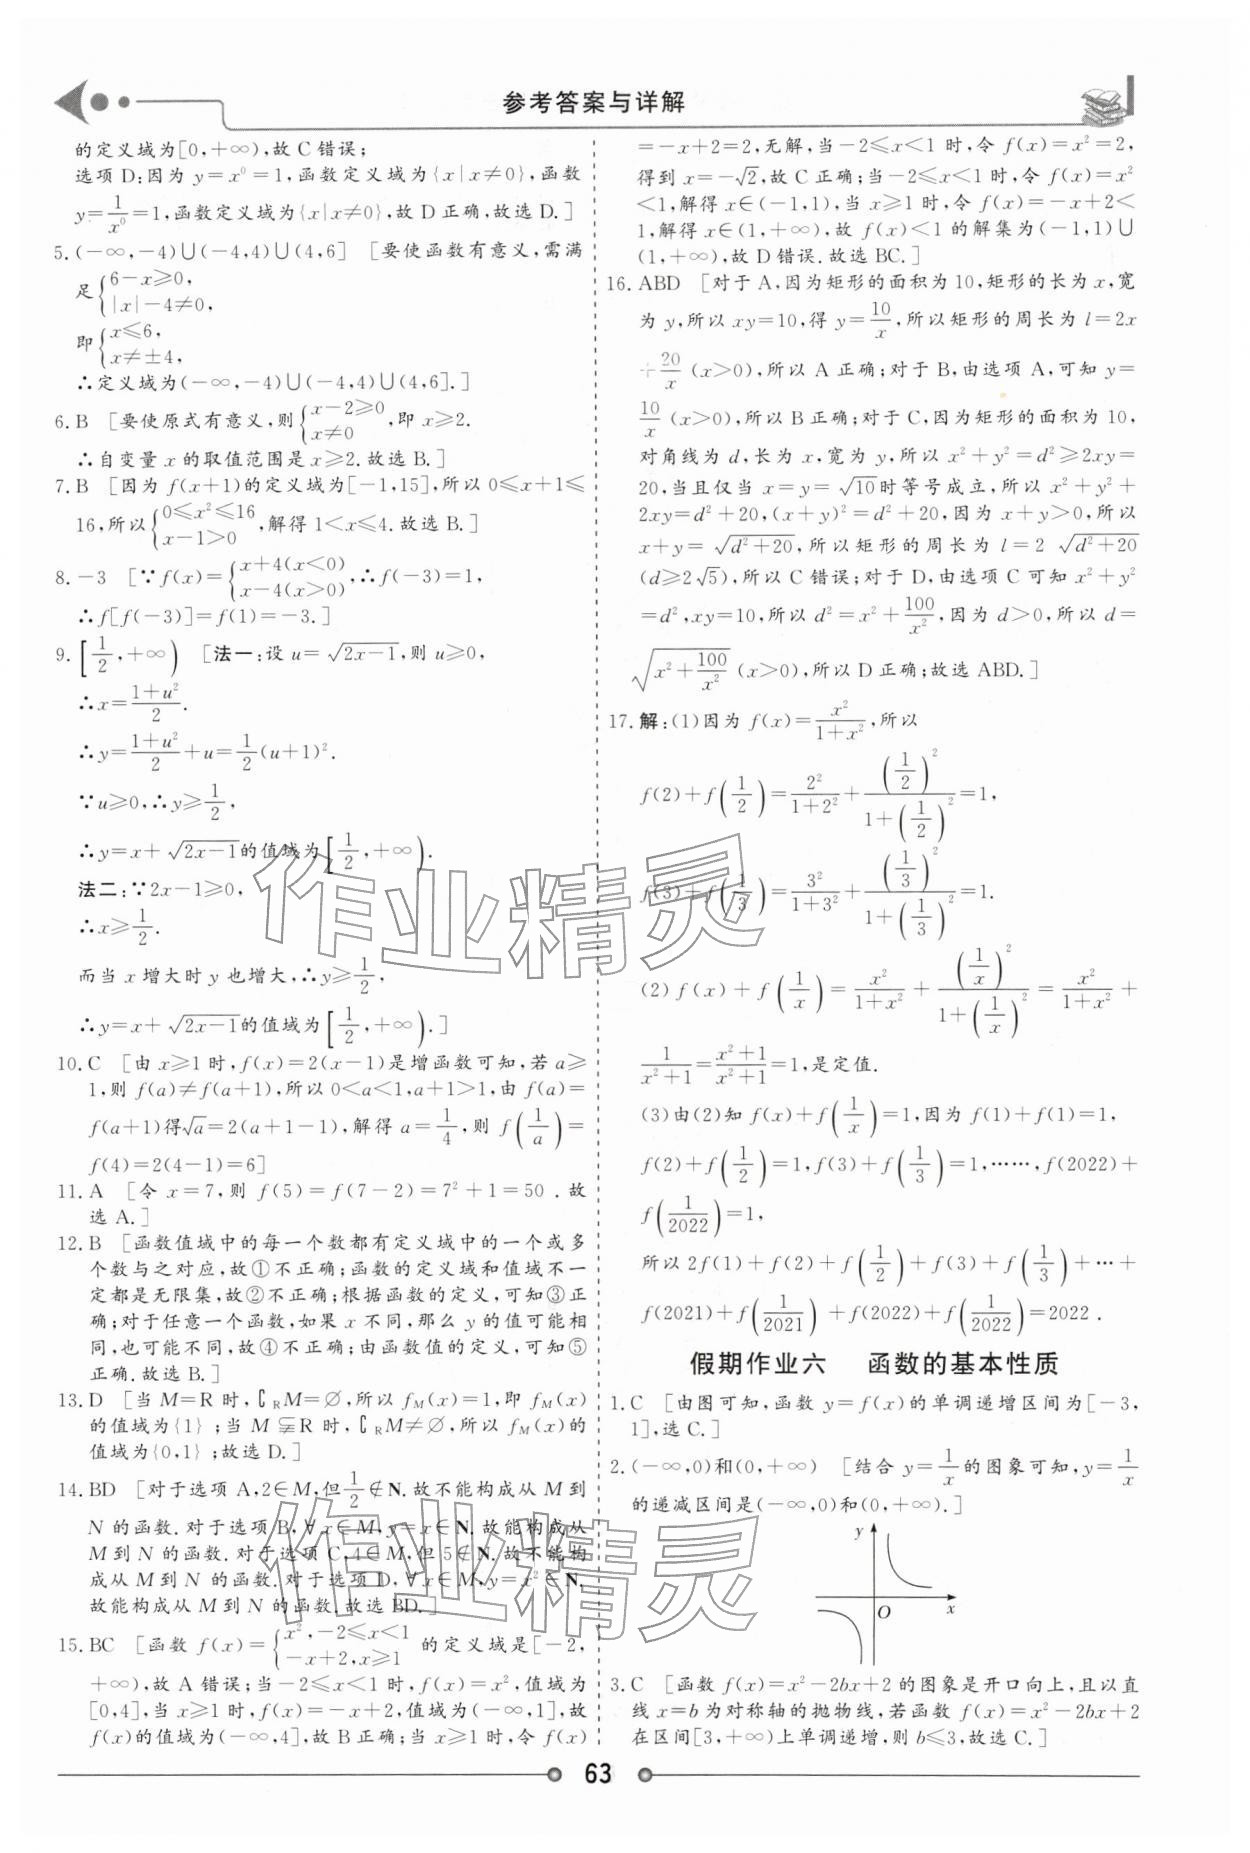 参考答案与详解
的定义域为[0,+∞),故 C 错误;
选项 D:因为 y=x⁰=1,函数定义域为{x|x≠0},函数
y=1/x⁰=1,函数定义域为{x|x≠0},故 D 正确,故选 D.]
5.(-∞,-4)∪(-4,4)∪(4,6] [要使函数有意义,需满
足{6-x≥0,
|x|-4≠0,
即{x≤6,
x≠±4,
∴定义域为(-∞,-4)∪(-4,4)∪(4,6].]
6.B [要使原式有意义,则{x-2≥0 x≠0,即 x≥2.
∴自变量 x 的取值范围是 x≥2.故选 B.]
7.B [因为 f(x+1)的定义域为[-1,15],所以 0≤x+1≤
16,所以{0≤x²≤16 x-1>0,解得 1<x≤4.故选 B.]
8.-3 [∵f(x)={x+4(x<0) x-4(x>0),∴f(-3)=1,
∴f[f(-3)]=f(1)=-3.]
9.[1/2,+∞) [法一:设 u=√(2x-1),则 u≥0,
∴x=(1+u²)/2.
∴y=(1+u²)/2+u=1/2(u+1)².
∵u≥0,∴y≥1/2,
∴y=x+√(2x-1)的值域为[1/2,+∞).
法二:∵2x-1≥0,
∴x≥1/2.
而当 x 增大时 y 也增大,∴y≥1/2,
∴y=x+√(2x-1)的值域为[1/2,+∞).]
10.C [由 x≥1 时,f(x)=2(x-1)是增函数可知,若 a≥
1,则 f(a)≠f(a+1),所以 0<a<1,a+1>1,由 f(a)=
f(a+1)得√a=2(a+1-1),解得 a=1/4,则 f(1/a)=
f(4)=2(4-1)=6]
11.A [令 x=7,则 f(5)=f(7-2)=7²+1=50.故
选 A.]
12.B [函数值域中的每一个数都有定义域中的一个或多
个数与之对应,故①不正确;函数的定义域和值域不一
定都是无限集,故②不正确;根据函数的定义,可知③正
确;对于任意一个函数,如果 x 不同,那么 y 的值可能相
同,也可能不同,故④不正确;由函数值的定义,可知⑤
正确.故选 B.]
13.D [当 M=R 时,∁RM=∅,所以 fM(x)=1,即 fM(x)
的值域为{1};当 M⫋R 时,∁RM≠∅,所以 fM(x)的
值域为{0,1};故选 D.]
14.BD [对于选项 A,2∈M,但1/2∉N.故不能构成从 M 到
N 的函数.对于选项 B,∀x∈M,y=x∈N.故能构成从
M 到 N 的函数.对于选项 C,4∈M,但 5∉N.故不能构
成从 M 到 N 的函数.对于选项 D,∀x∈M,y=x²∈N.
故能构成从 M 到 N 的函数.故选 BD.]
15.BC [函数 f(x)={x²,-2≤x<1 -x+2,x≥1 的定义域是[-2,
+∞),故 A 错误;当-2≤x<1 时,f(x)=x²,值域为
[0,4],当 x≥1 时,f(x)=-x+2,值域为(-∞,1],故
f(x)的值域为(-∞,4],故 B 正确;当 x≥1 时,令 f(x)
=-x+2=2,无解,当-2≤x<1 时,令 f(x)=x²=2,
得到 x=-√2,故 C 正确;当-2≤x<1 时,令 f(x)=x²
<1,解得 x∈(-1,1),当 x≥1 时,令 f(x)=-x+2<
1,解得 x∈(1,+∞),故 f(x)<1 的解集为(-1,1)∪
(1,+∞),故 D 错误.故选 BC.]
16.ABD [对于 A,因为矩形的面积为 10,矩形的长为 x,宽
为 y,所以 xy=10,得 y=10/x,所以矩形的周长为 l=2x
+20/x(x>0),所以 A 正确;对于 B,由选项 A,可知 y=
10/x(x>0),所以 B 正确;对于 C,因为矩形的面积为 10,
对角线为 d,长为 x,宽为 y,所以 x²+y²=d²≥2xy=
20,当且仅当 x=y=√10时等号成立,所以 x²+y²+
2xy=d²+20,(x+y)²=d²+20,因为 x+y>0,所以
x+y=√(d²+20),所以矩形的周长为 l=2√(d²+20)
(d≥2√5),所以 C 错误;对于 D,由选项 C 可知 x²+y²
=d²,xy=10,所以 d²=x²+100/x²,因为 d>0,所以 d=
√(x²+100/x²)(x>0),所以 D 正确;故选 ABD.]
17.解:(1)因为 f(x)=x²/(1+x²),所以
f(2)+f(1/2)=2²/(1+2²)+(1/2)²/(1+(1/2)²)=1,
f(3)+f(1/3)=3²/(1+3²)+(1/3)²/(1+(1/3)²)=1.
(2)f(x)+f(1/x)=x²/(1+x²)+(1/x)²/(1+(1/x)²)=x²/(1+x²)+
1/(x²+1)=(x²+1)/(x²+1)=1,是定值.
(3)由(2)知 f(x)+f(1/x)=1,因为 f(1)+f(1)=1,
f(2)+f(1/2)=1,f(3)+f(1/3)=1,……,f(2022)+
f(1/2022)=1,
所以 2f(1)+f(2)+f(1/2)+f(3)+f(1/3)+…+
f(2021)+f(1/2021)+f(2022)+f(1/2022)=2022.
假期作业六 函数的基本性质
1.C [由图可知,函数 y=f(x)的单调递增区间为[-3,
1],选 C.]
2.(-∞,0)和(0,+∞) [结合 y=1/x的图象可知,y=1/x
的递减区间是(-∞,0)和(0,+∞).]
y
O x
3.C [函数 f(x)=x²-2bx+2 的图象是开口向上,且以直
线 x=b 为对称轴的抛物线,若函数 f(x)=x²-2bx+2
在区间[3,+∞)上单调递增,则 b≤3,故选 C.]
63
作业精灵
作业精灵